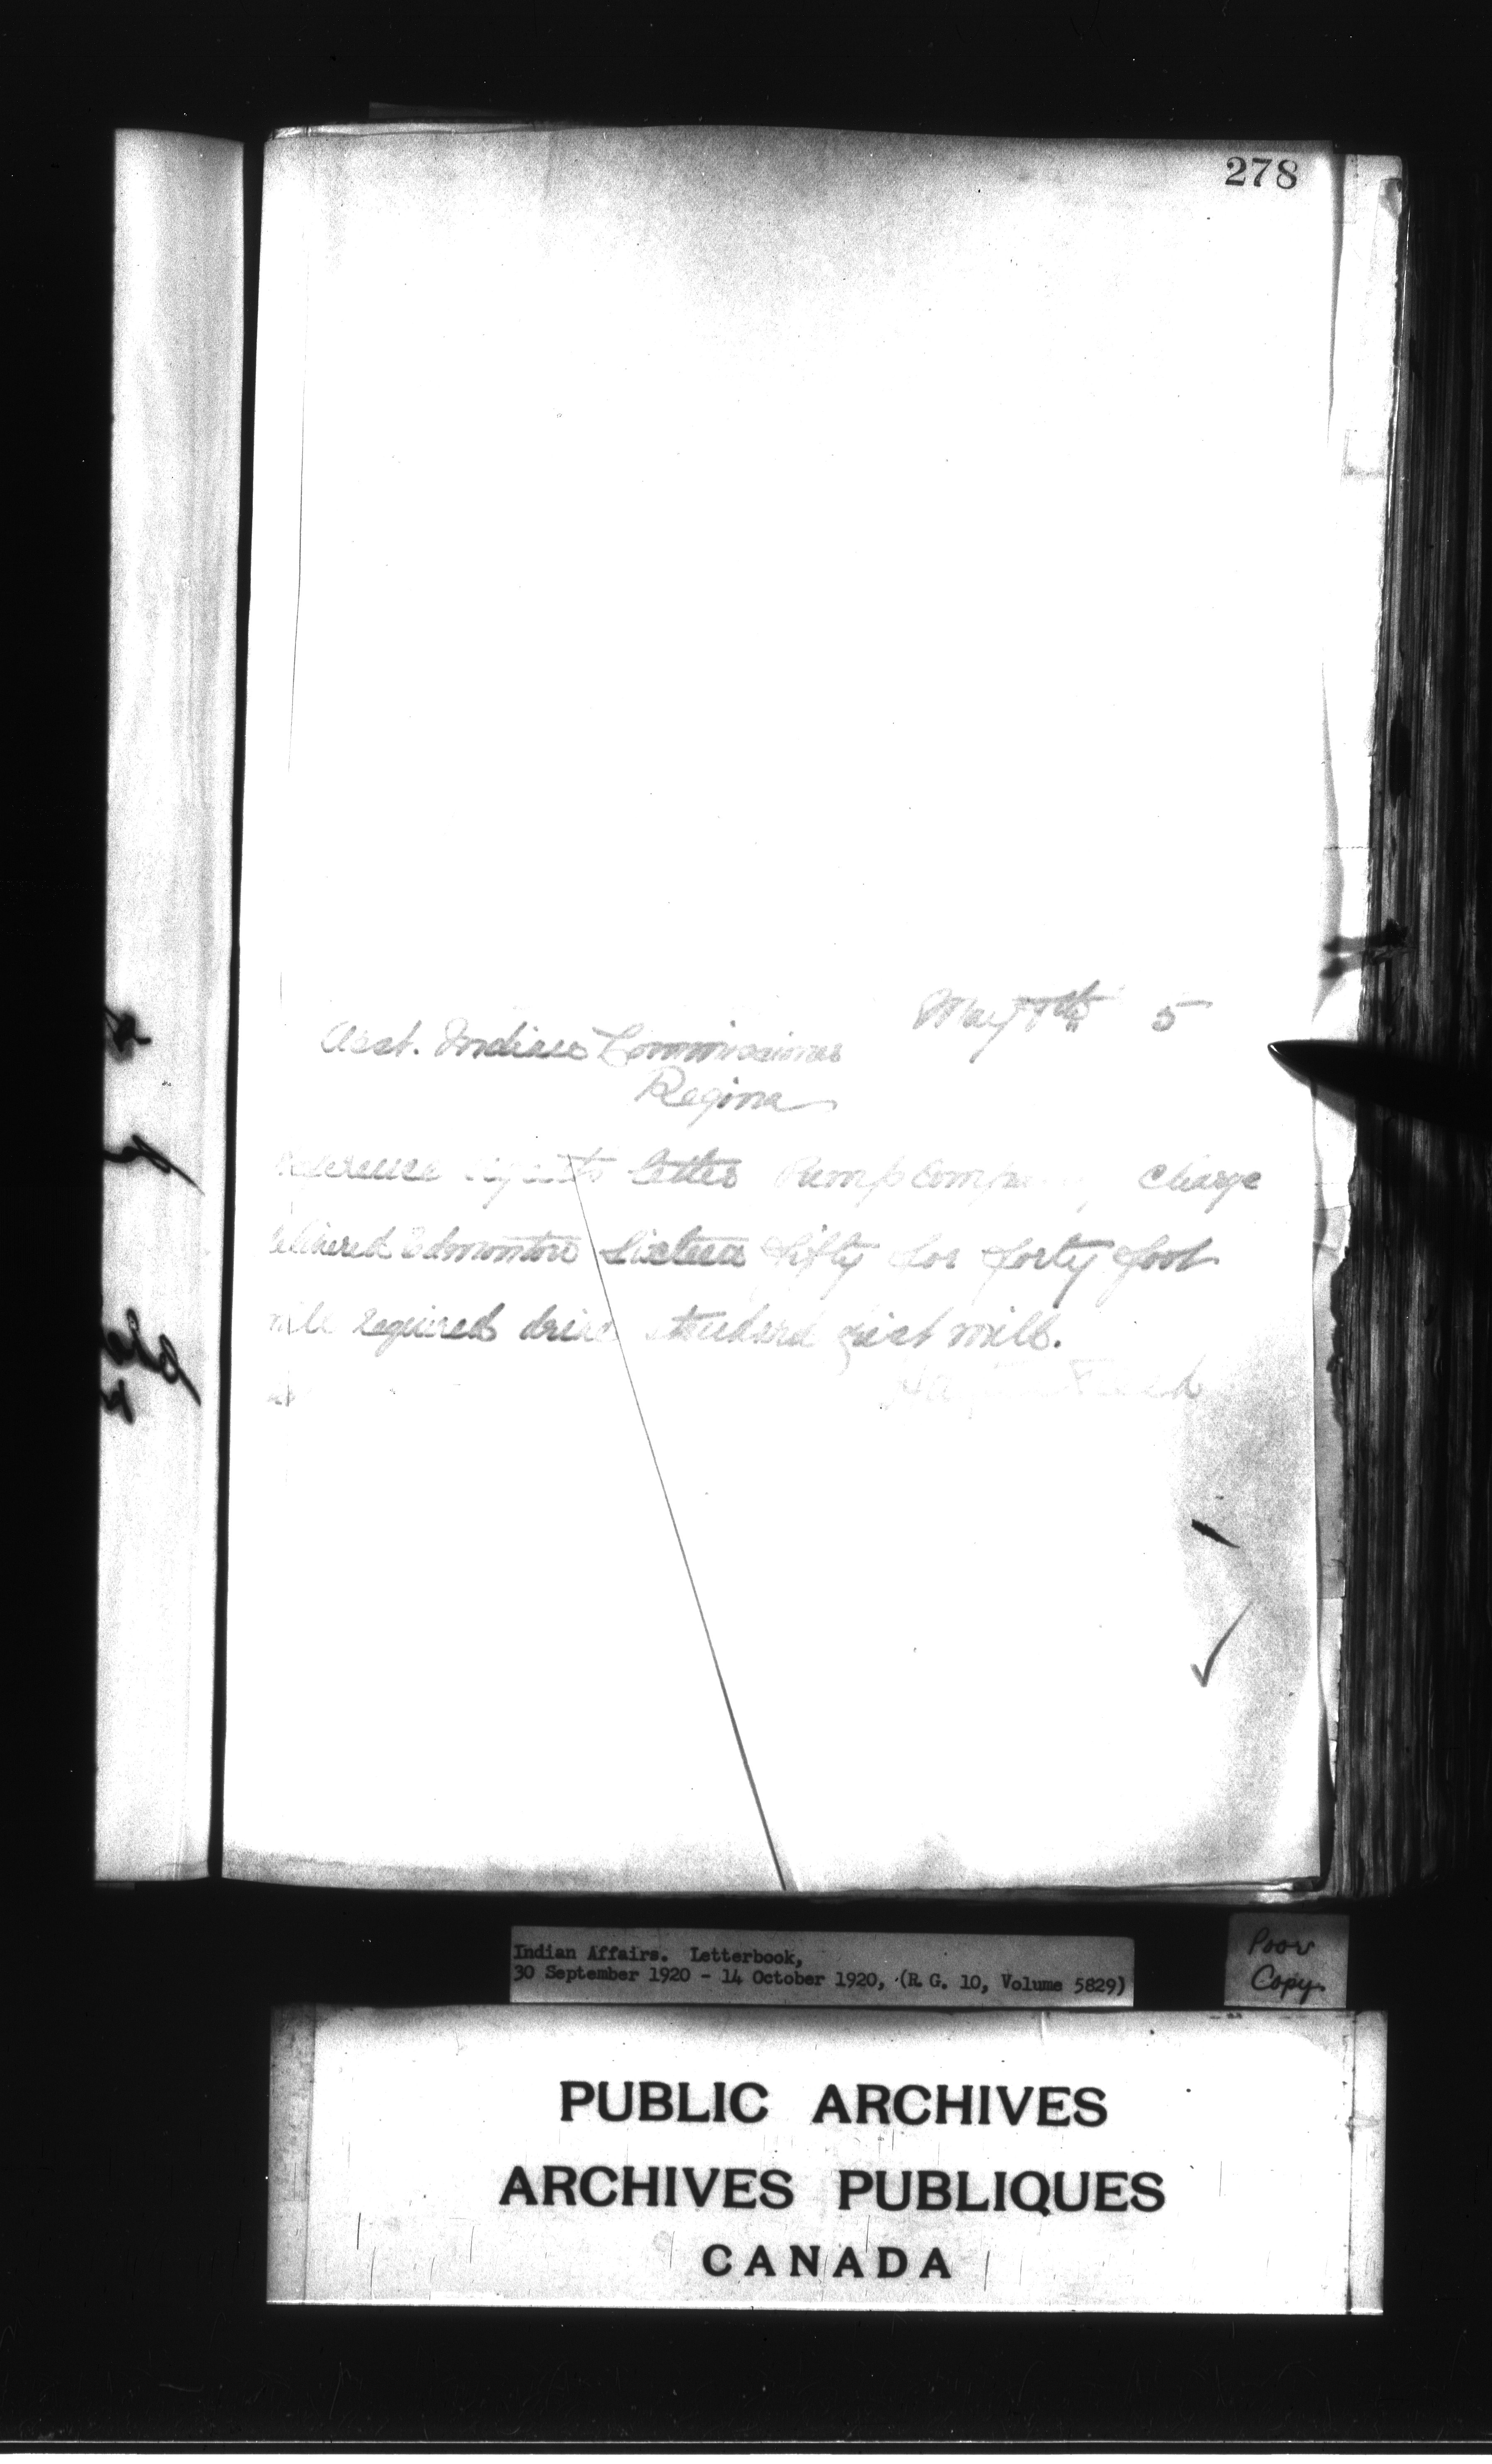 278
May 5
Asst. Indian Commissioner
Regina
letter Pump Company charge
Edmonton Sixteen fifty for forty foot
required standard grist mill.
Indian Affairs. Letterbook,
30 September 1920 - 14 October 1920, (R. G. 10, Volume 5829)
Poor
Copy
PUBLIC ARCHIVES
ARCHIVES PUBLIQUES
CANADA